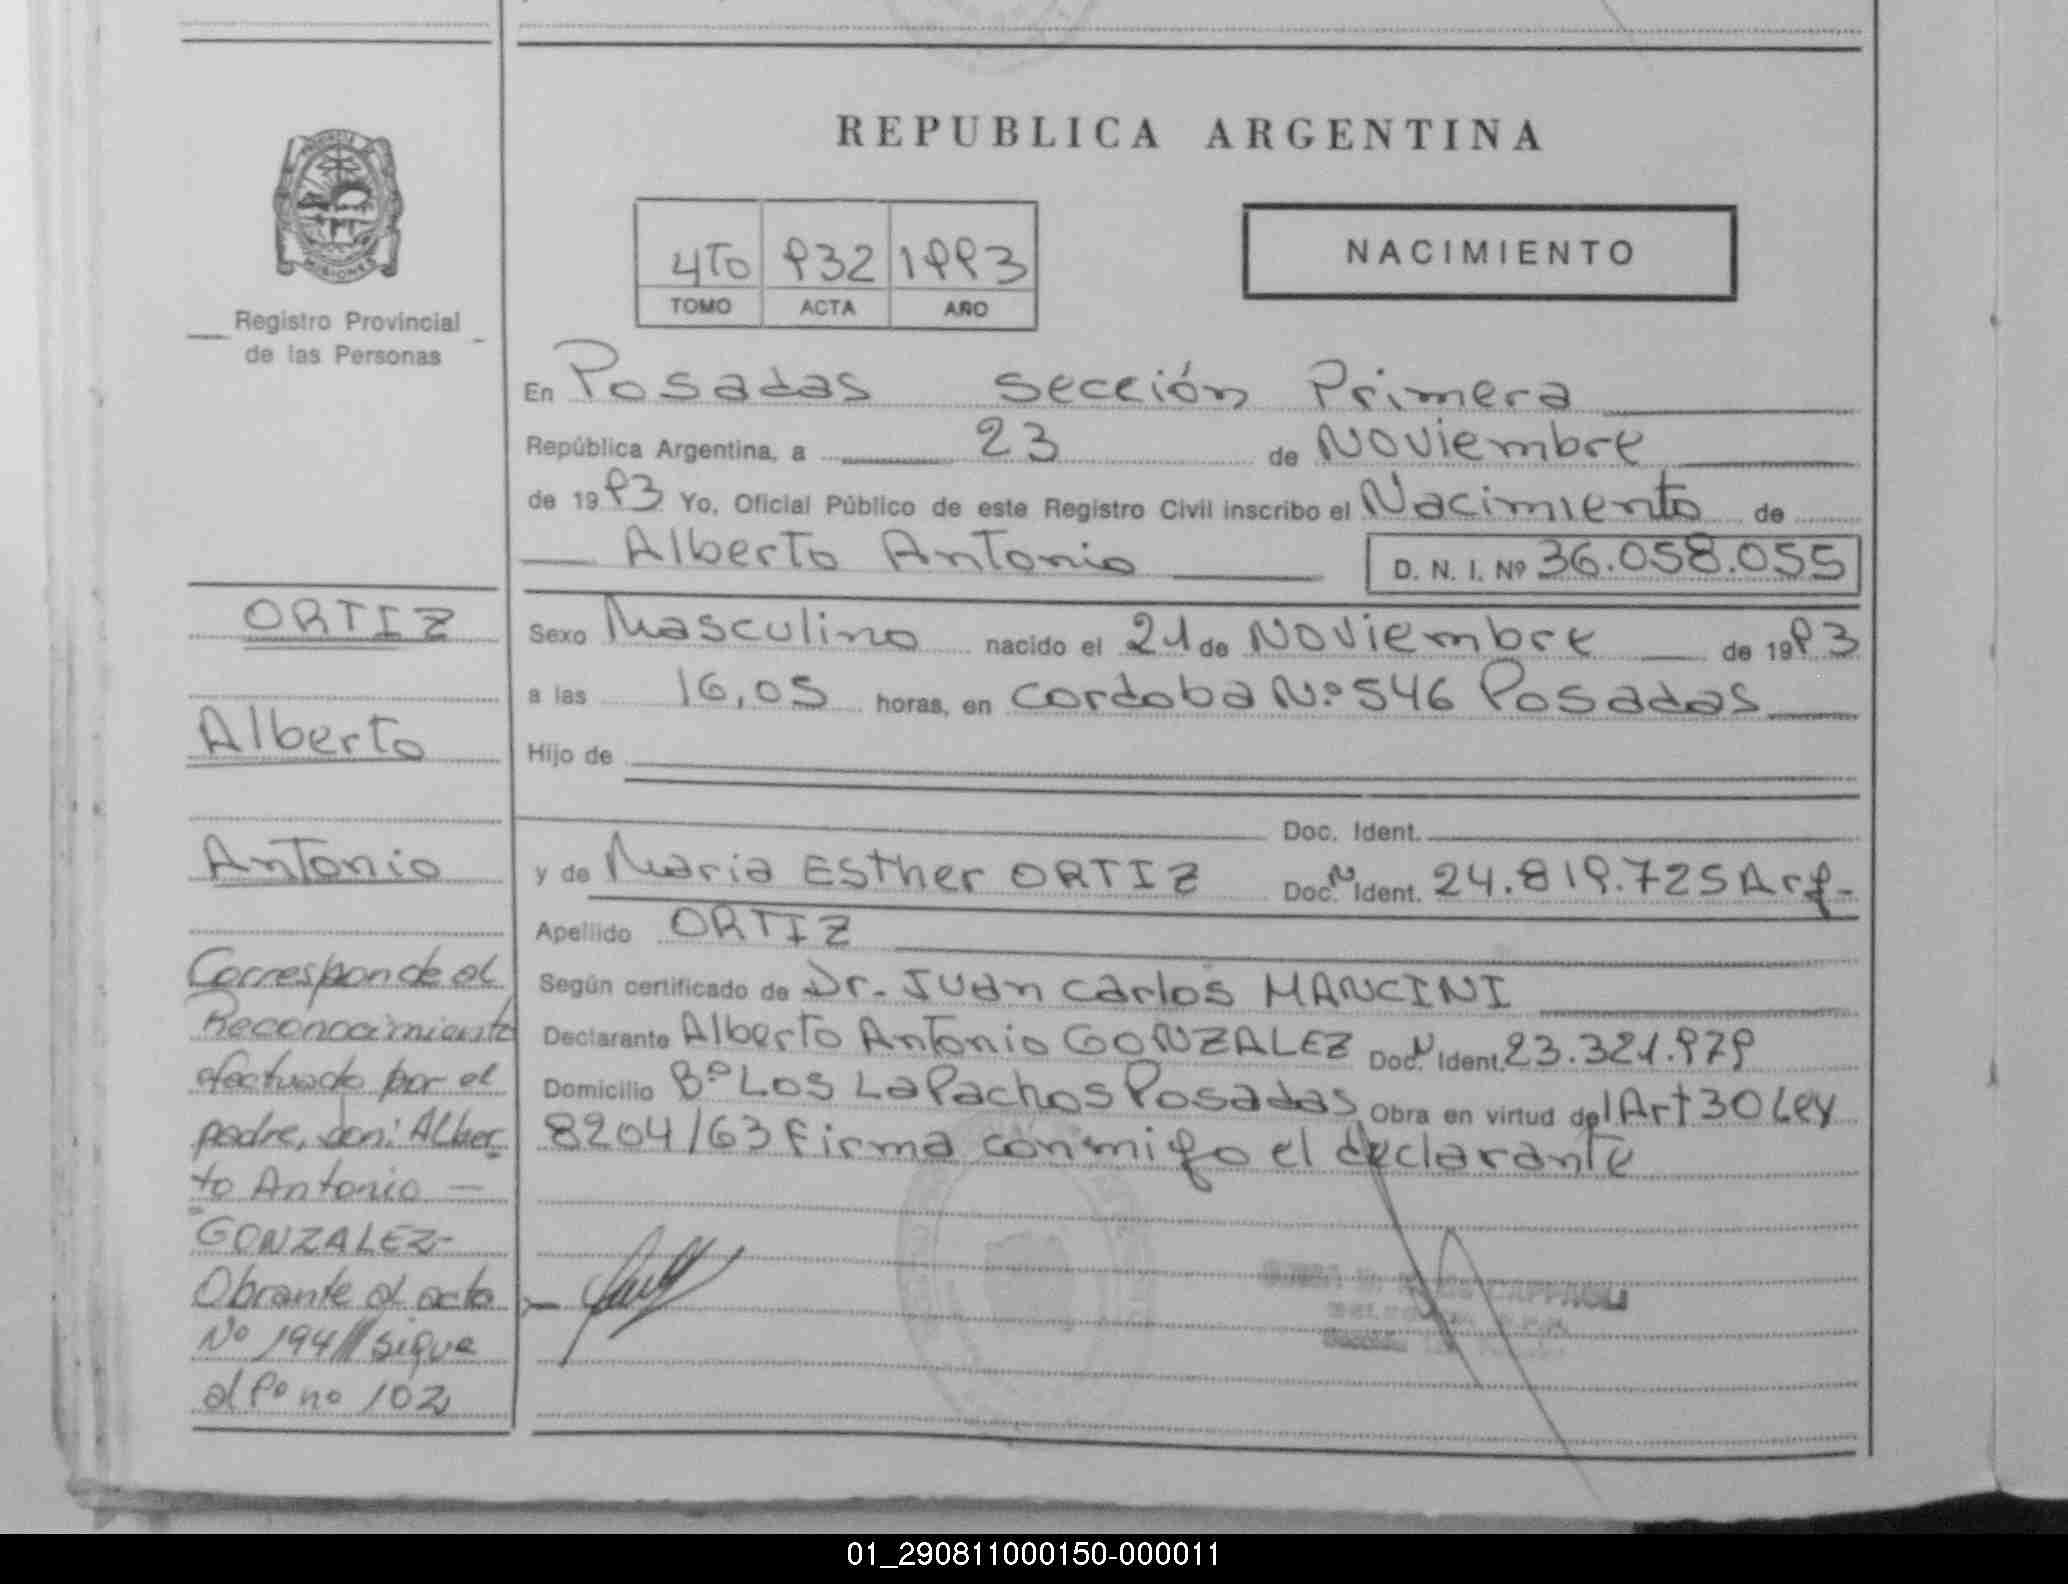 REPUBLICA ARGENTINA
PROVINCIA
MISIONES
Registro Provincial
de las Personas
4To 932 1993
TOMO ACTA AÑO
NACIMIENTO
En Posadas sección Primera
República Argentina, a 23 de Noviembre
de 1993 Yo, Oficial Público de este Registro Civil inscribo el Nacimiento de
Alberto Antonio D. N. I. Nº 36.058.055
Sexo Masculino nacido el 21 de Noviembre de 1993
a las 16,05 horas, en Cordoba N.º 546 Posadas
Hijo de
Doc. Ident.
y de Maria Esther ORTIZ Doc. Nº Ident. 24.819.725 Arg-
Apellido ORTIZ
Según certificado de Dr. Juan Carlos MANCINI
Declarante Alberto Antonio GONZALEZ Doc. Nº Ident. 23.321.979
Domicilio Bº Los LaPachos Posadas Obra en virtud del Art 30 Ley
8204/63 Firma conmigo el declarante
ORTIZ
Alberto
Antonio
Corresponde al
Reconocimiento
efectuado por el
padre, don: Alber
to Antonio —
GONZALEZ-
Obrante al acta
Nº 194// sigue
al fº nº 102
CAPPAGLI
01_290811000150-000011